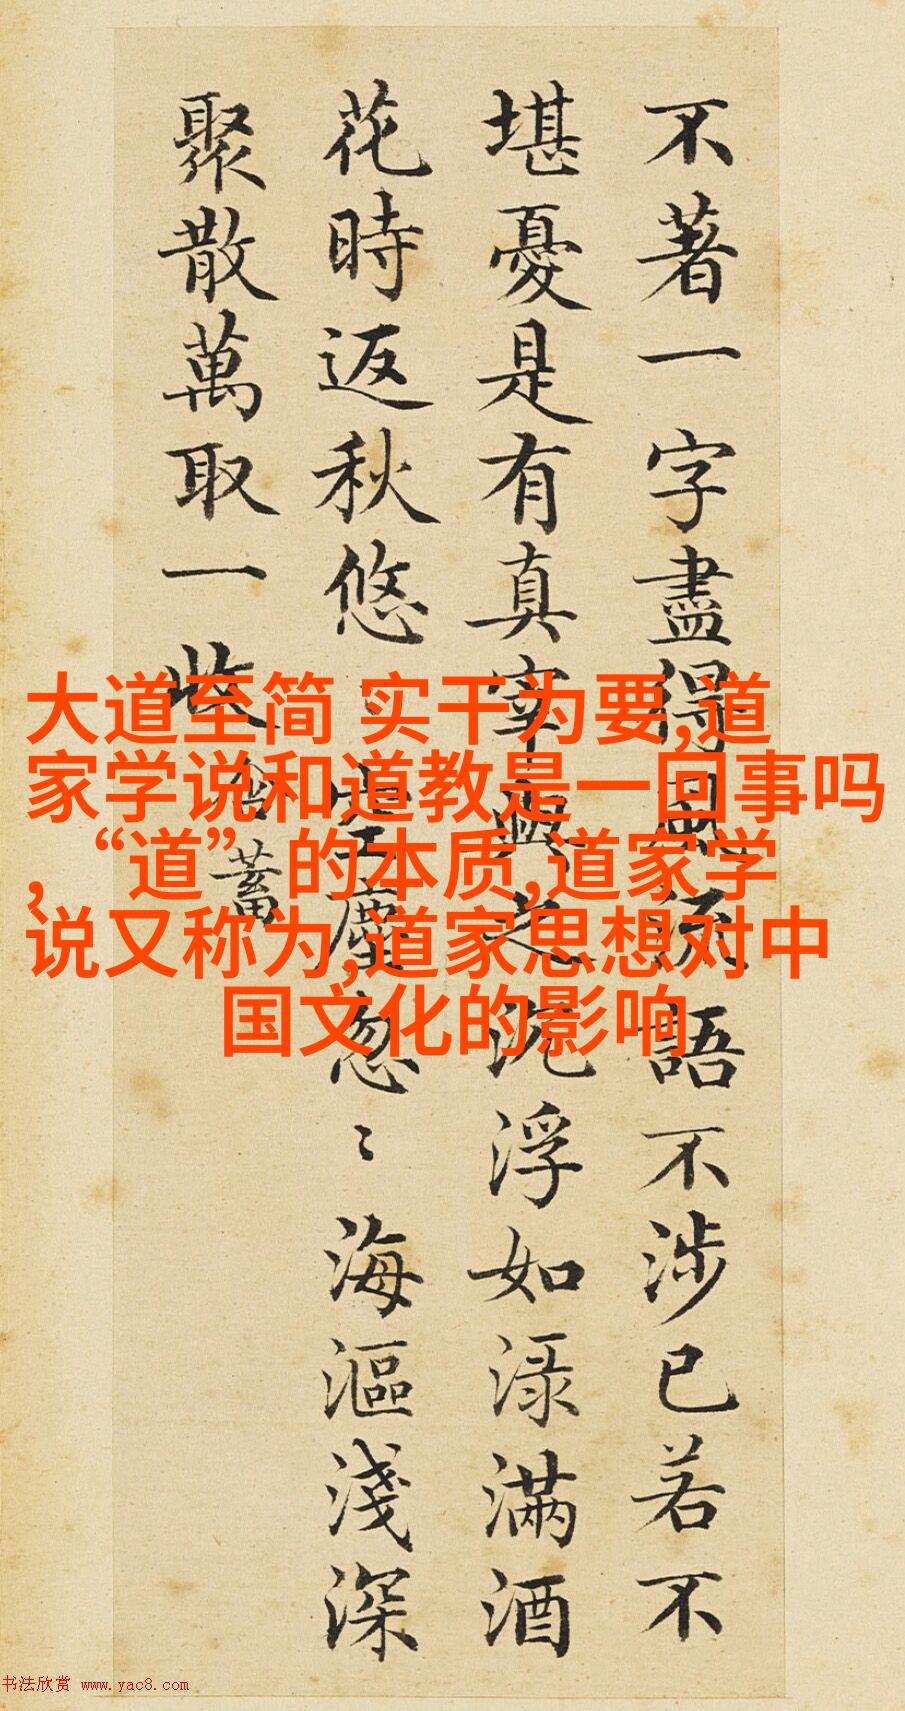 不著一字盡得風流語不涉已若不
堪憂是有真宰與之沉浮如渌滿酒
花時返秋悠〻空塵忽〻海漚淺深
聚散萬取一收
含蓄
大道至简 实干为要,道
家学说和道教是一回事吗
,“道”的本质,道家学
说又称为,道家思想对中
国文化的影响
书法欣赏 www.yac8.com